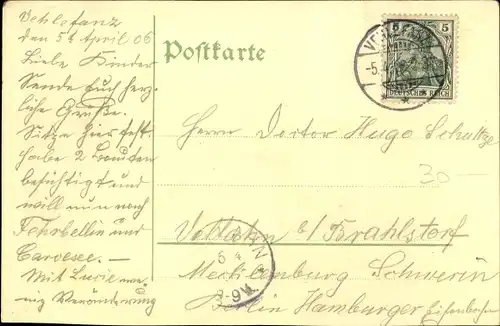 Vehlefanz
den 5t April 06
Liebe Kinder
Sende Euch herz-
liche Grüße.
Sitze hier fest
habe 2 Bauten
besichtigt und
will nun nach
Fehrbellin und
Carwesee. —
Mit Luise we-
nig Veränderung
Postkarte
5 5
DEUTSCHES REICH
Herrn Doctor Hugo Schultze
30
b/ Brahlstorf
Mecklenburg Schwerin
Berlin Hamburger Eisenbahn